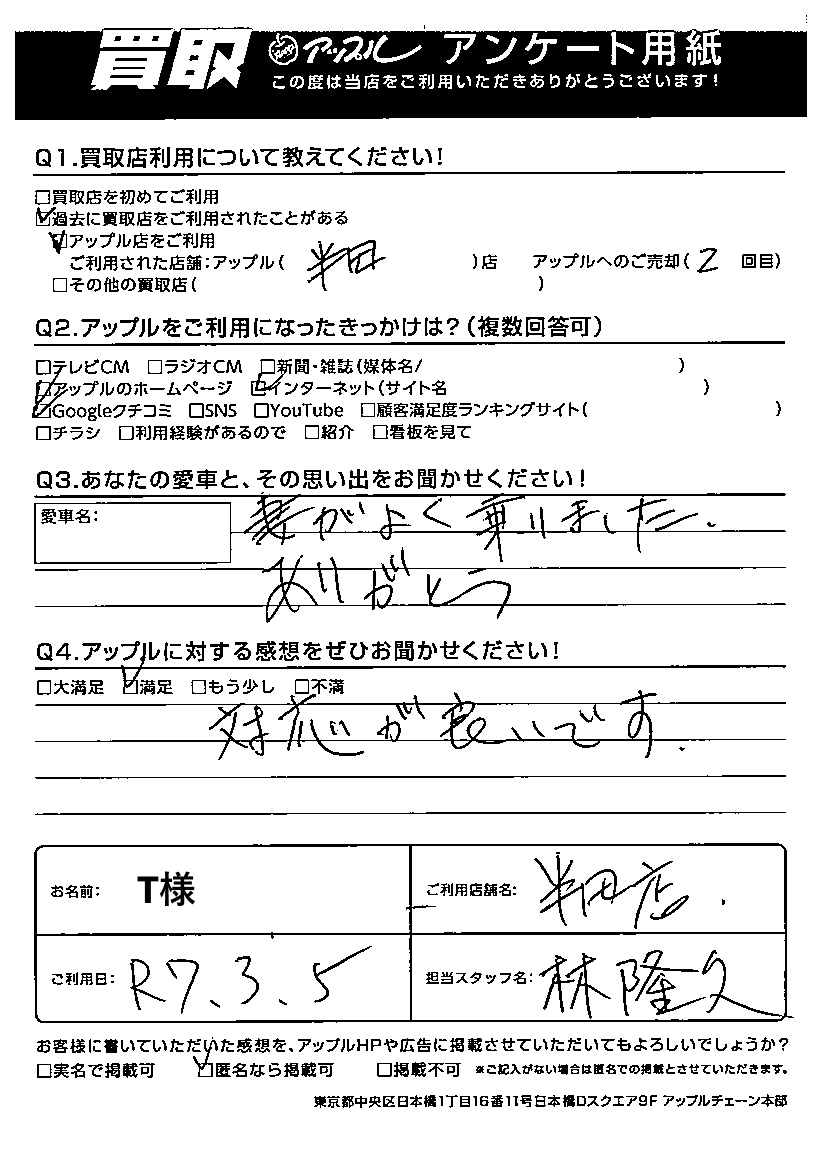 買取 アップル アンケート用紙
この度は当店をご利用いただきありがとうございます!
Q1.買取店利用について教えてください!
□買取店を初めてご利用
☑過去に買取店をご利用されたことがある
☑アップル店をご利用
ご利用された店舗:アップル( 半田 )店 アップルへのご売却( 2 回目)
□その他の買取店( )
Q2.アップルをご利用になったきっかけは?(複数回答可)
□テレビCM □ラジオCM □新聞・雑誌(媒体名/ )
☑アップルのホームページ ☑インターネット(サイト名 )
☑Googleクチコミ □SNS □YouTube □顧客満足度ランキングサイト( )
□チラシ □利用経験があるので □紹介 □看板を見て
Q3.あなたの愛車と、その思い出をお聞かせください!
愛車名:
妻がよく乗りました.
ありがとう
Q4.アップルに対する感想をぜひお聞かせください!
□大満足 ☑満足 □もう少し □不満
対応が良いです.
お名前: T様
ご利用店舗名: 半田店.
ご利用日: R7.3.5
担当スタッフ名: 林隆久
お客様に書いていただいた感想を、アップルHPや広告に掲載させていただいてもよろしいでしょうか?
□実名で掲載可 ☑匿名なら掲載可 □掲載不可 ※ご記入がない場合は匿名での掲載とさせていただきます。
東京都中央区日本橋1丁目16番11号日本橋Dスクエア9F アップルチェーン本部